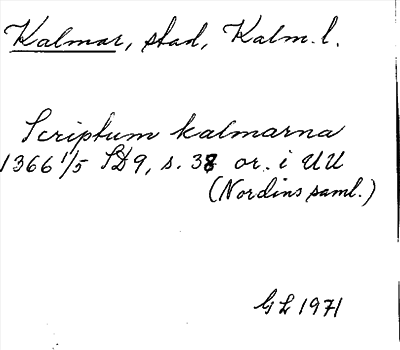 Kalmar, stad, Kalm. l.
Scriptum kalmarna
1366 1/5 SD 9, s. 38 or. i UU
(Nordins saml.)
GL 1971